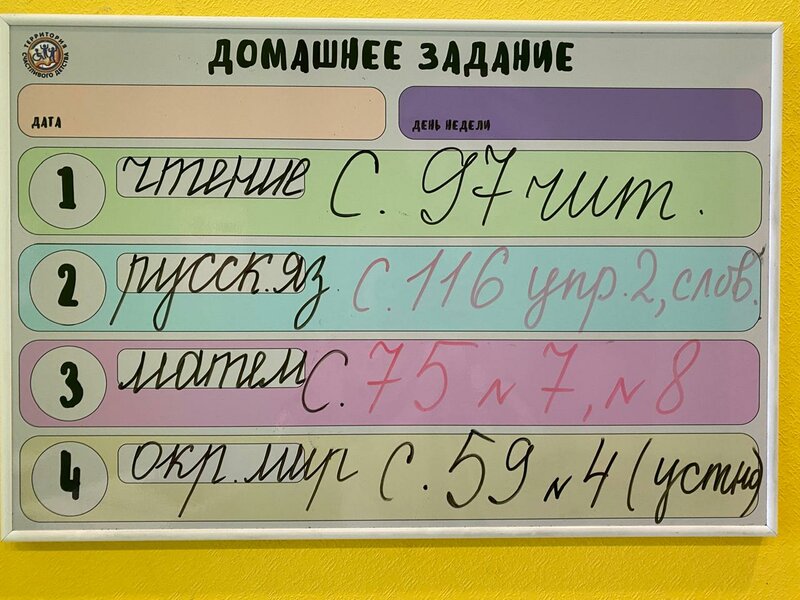 ТЕРРИТОРИЯ СЧАСТЛИВОГО ДЕТСТВА
ДОМАШНЕЕ ЗАДАНИЕ
ДАТА
ДЕНЬ НЕДЕЛИ
1 чтение с. 97 чит.
2 русск.яз. с. 116 упр. 2, слов.
3 матем с. 75 № 7, № 8
4 окр. мир с. 59 № 4 (устно)